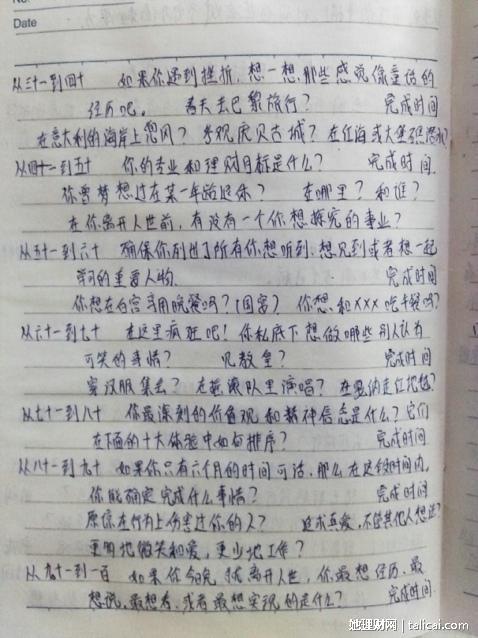 No.
Date
从三十一到四十 如果你遇到挫折，想一想，那些感觉像童话的
经历吧。 春天去巴黎旅行？ 完成时间
在意大利的海岸上 参观庞贝古城？ 在红海或大堡礁潜水？
从四十一到五十 你的专业和理财目标是什么？ 完成时间
你曾梦想过在某一年龄退休？ 在哪里？和谁？
在你离开人世前，有没有一个你想探究的事业？
从五十一到六十 确保你列出了所有你想听到、想见到或者想一起
学习的重要人物. 完成时间
你想在白宫享用晚餐吗？(国宴) 你想和XXX吃午餐吗？
从六十一到七十 在这里疯狂吧！你私底下想做哪些别人认为
可笑的事情？ 见教皇？ 完成时间
穿汉服集会？ 在摇滚队里演唱？ 在戛纳走红地毯？
从七十一到八十 你最深刻的价值观和精神信念是什么？它们
在下面的十大体验中如何排序？ 完成时间
从八十一到九十 如果你只有六个月的时间可活，那么在这段时间内，
你能确定完成什么事情？ 完成时间
原谅在行为上伤害过你的人？ 追求真爱，不管其他人想法？
更多地微笑和爱，更少地工作？
从九十一到一百 如果你今晚就离开人世，你最想经历、最
想说、最想看、或者最想实现的是什么？ 完成时间.
她理财网 | talicai.com